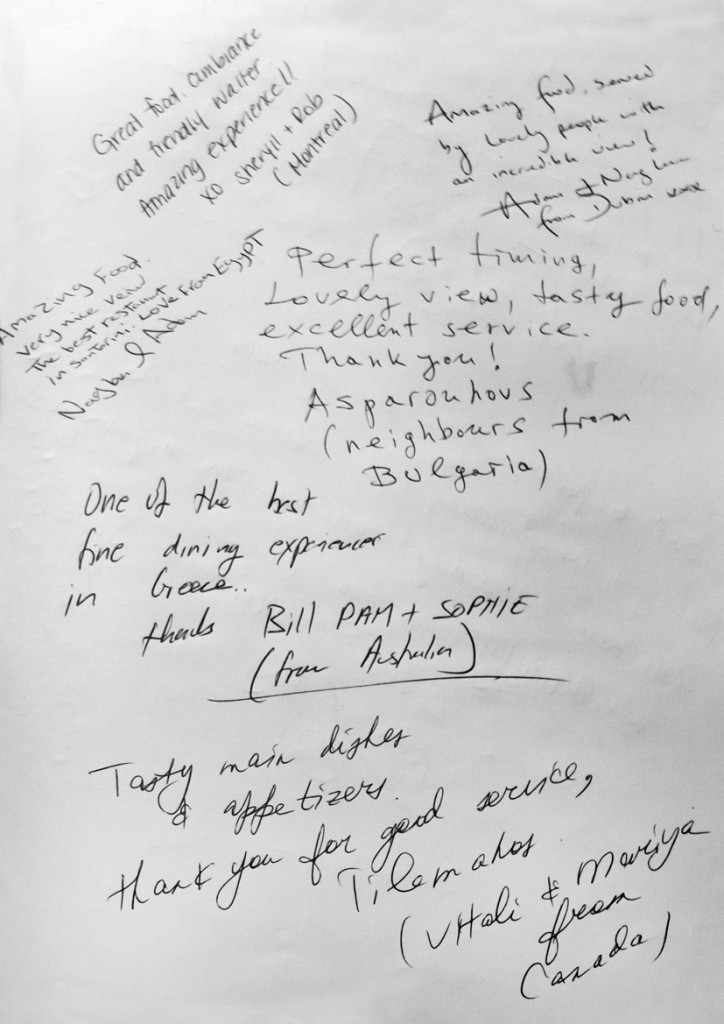 Great food. ambiance
and friendly waiter
Amazing experience!!
xo sheryll + Rob
(Montreal)
Amazing food, served
by lovely people with
an incredible view!
Adam &
from Dubai xxx
Amazing Food.
very nice veiw
The best restarnut
in santorini. Love From EgypT
& Adam
Perfect timing,
Lovely view, tasty food,
excellent service.
Thank you!
Asparouhovs
(neighbours from
Bulgaria)
One of the best
fine dining experiences
in Greece..
thanks Bill PAM + SOPHIE
(from Australia)
Tasty main dishes
& appetizers.
thank you for good service,
Tilemahos.
(Vitali & Mariya
from
Canada)